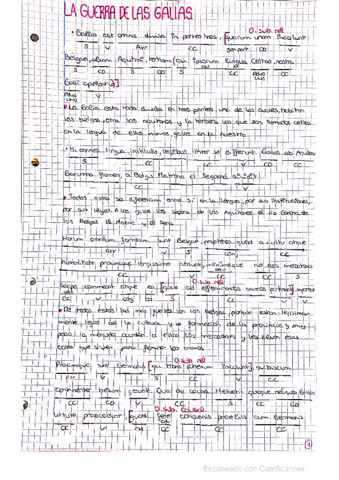 LA GUERRA DE LAS GALIAS.
O. sub. rel
• Gallia est omnis divisa in partes tres, [quarum unam incolunt
S V Atr CC snpart CD V
Belgae, aliam Aquitani, tertiam [qui ipsorum lingua Celtae, nostra
S CD S CD S CC CC
Galli appellantur]]
V
• La Galia está toda dividida en tres partes, una de las cuales, habitan
los belgas, otra los aquitanos y la tercera los que son llamados celtas
en la lengua de ellos mismos, galos en la nuestra.
• Hi omnes lingua, institutis, legibus inter se differunt. Gallos ab Aquitanis
S CC CC V CD CC
Garumna flumen, a Belgis Matrona et Sequana dividit
CC V
• Todos estos se diferencian entre sí en la lengua, por sus instituciones,
por sus leyes. A los galos los separa de los Aquitanos el río Garona, de
los Belgas el Marne y el Sena.
Horum omnium fortissimi sunt Belgae, propterea quod a cultu atque
Atr V S conj CC
humanitate provinciae longissime absunt, minimeque ad eos mercatores
CC V CC S
O. sub. rel
saepe commeant atque ea [quae ad effeminandos animos pertinent] important
V CD CC V
• De todos estos los más fuertes son los belgas, porque están
mente lejos de la cultura y la formación de la provincia, y muy
poco a menudo acuden a ellos los mercaderes y les llevan esas
cosas que sirven para afeminar los ánimos.
O. sub rel
Proximique sunt Germanis [qui trans Rhenum incolunt], quibuscum
V S CC V CC
continenter bellum gerunt. Qua de causa Helvetii quoque reliquos Gallos
CC CD V CC S CC CD
O. sub. causal
virtute praecedunt, [quod fere cotidianis proeliis cum Germanis
CC V CC CC
1
Escaneado con CamScanner